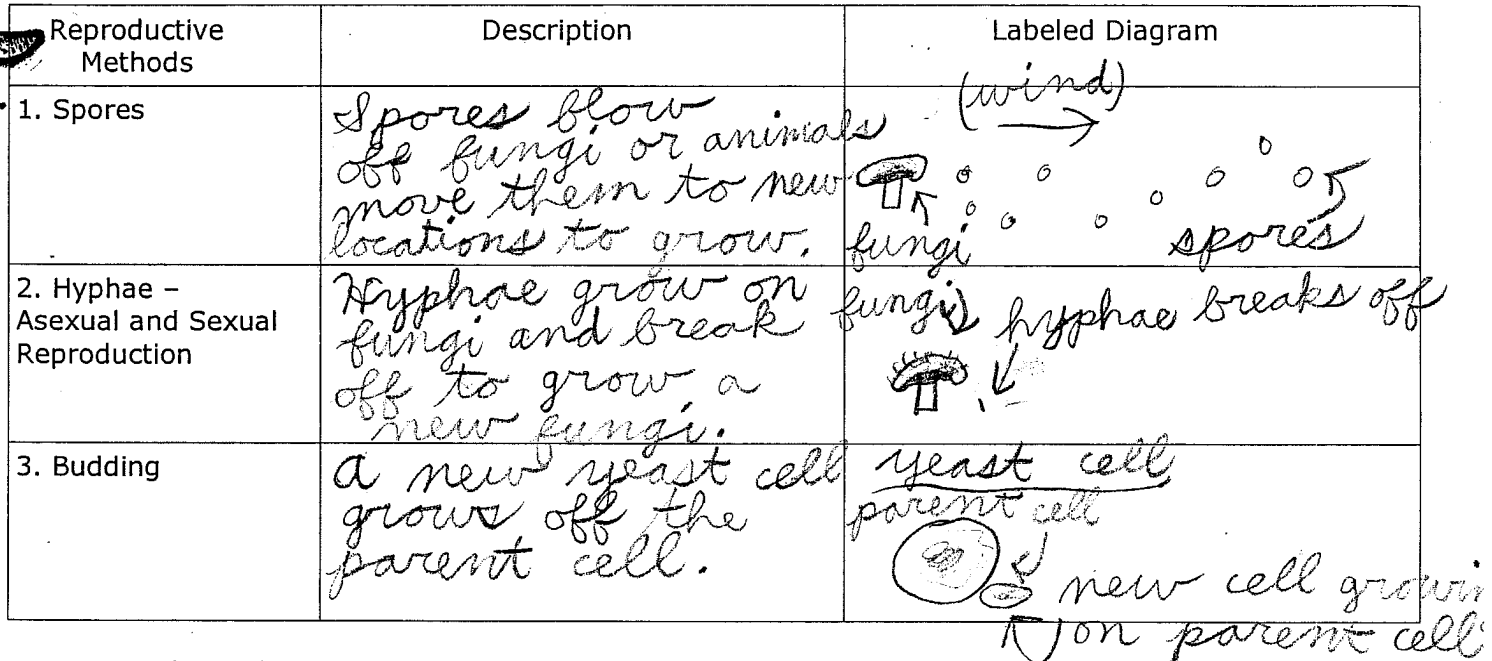 Reproductive
Methods
Description
Labeled Diagram
1. Spores
Spores blow
off fungi or animals
move them to new
locations to grow.
(wind)
fungi
spores
2. Hyphae –
Asexual and Sexual
Reproduction
Hyphae grow on
fungi and break
off to grow a
new fungi.
fungi
hyphae breaks off
3. Budding
a new yeast cell
grows off the
parent cell.
yeast cell
parent cell
new cell growin
on parent cell